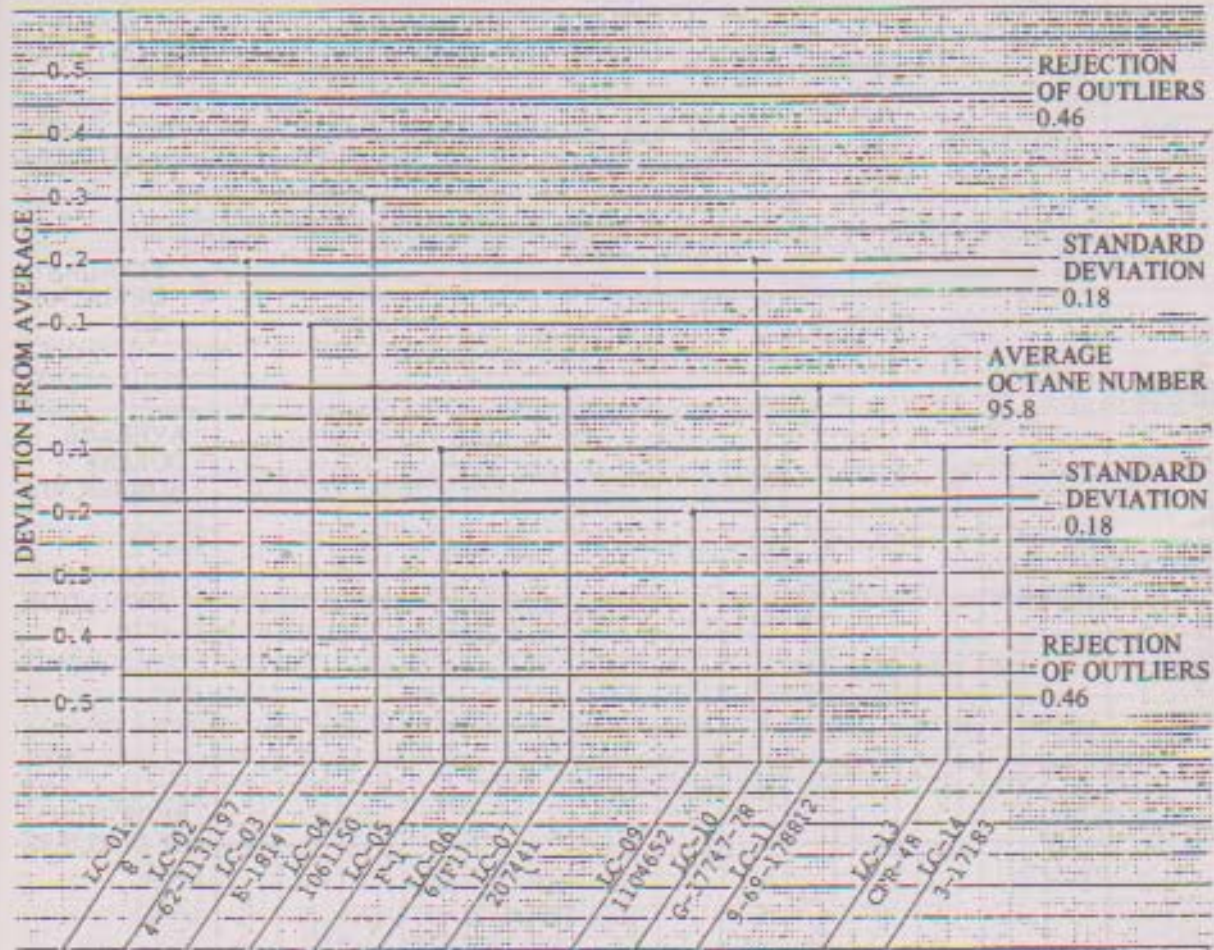 DEVIATION FROM AVERAGE
0.5
0.4
0.3
0.2
0.1
0.1
0.2
0.3
0.4
0.5
REJECTION
OF OUTLIERS
0.46
STANDARD
DEVIATION
0.18
AVERAGE
OCTANE NUMBER
95.8
STANDARD
DEVIATION
0.18
REJECTION
OF OUTLIERS
0.46
LC-01
8
LC-02
4-62-1131197
LC-03
E-1814
LC-04
1061150
LC-05
F-1
LC-06
6(F1)
LC-07
207441
LC-09
1104652
LC-10
G-37747-78
LC-11
9-69-1786812
LC-13
CFR-48
LC-14
3-17183